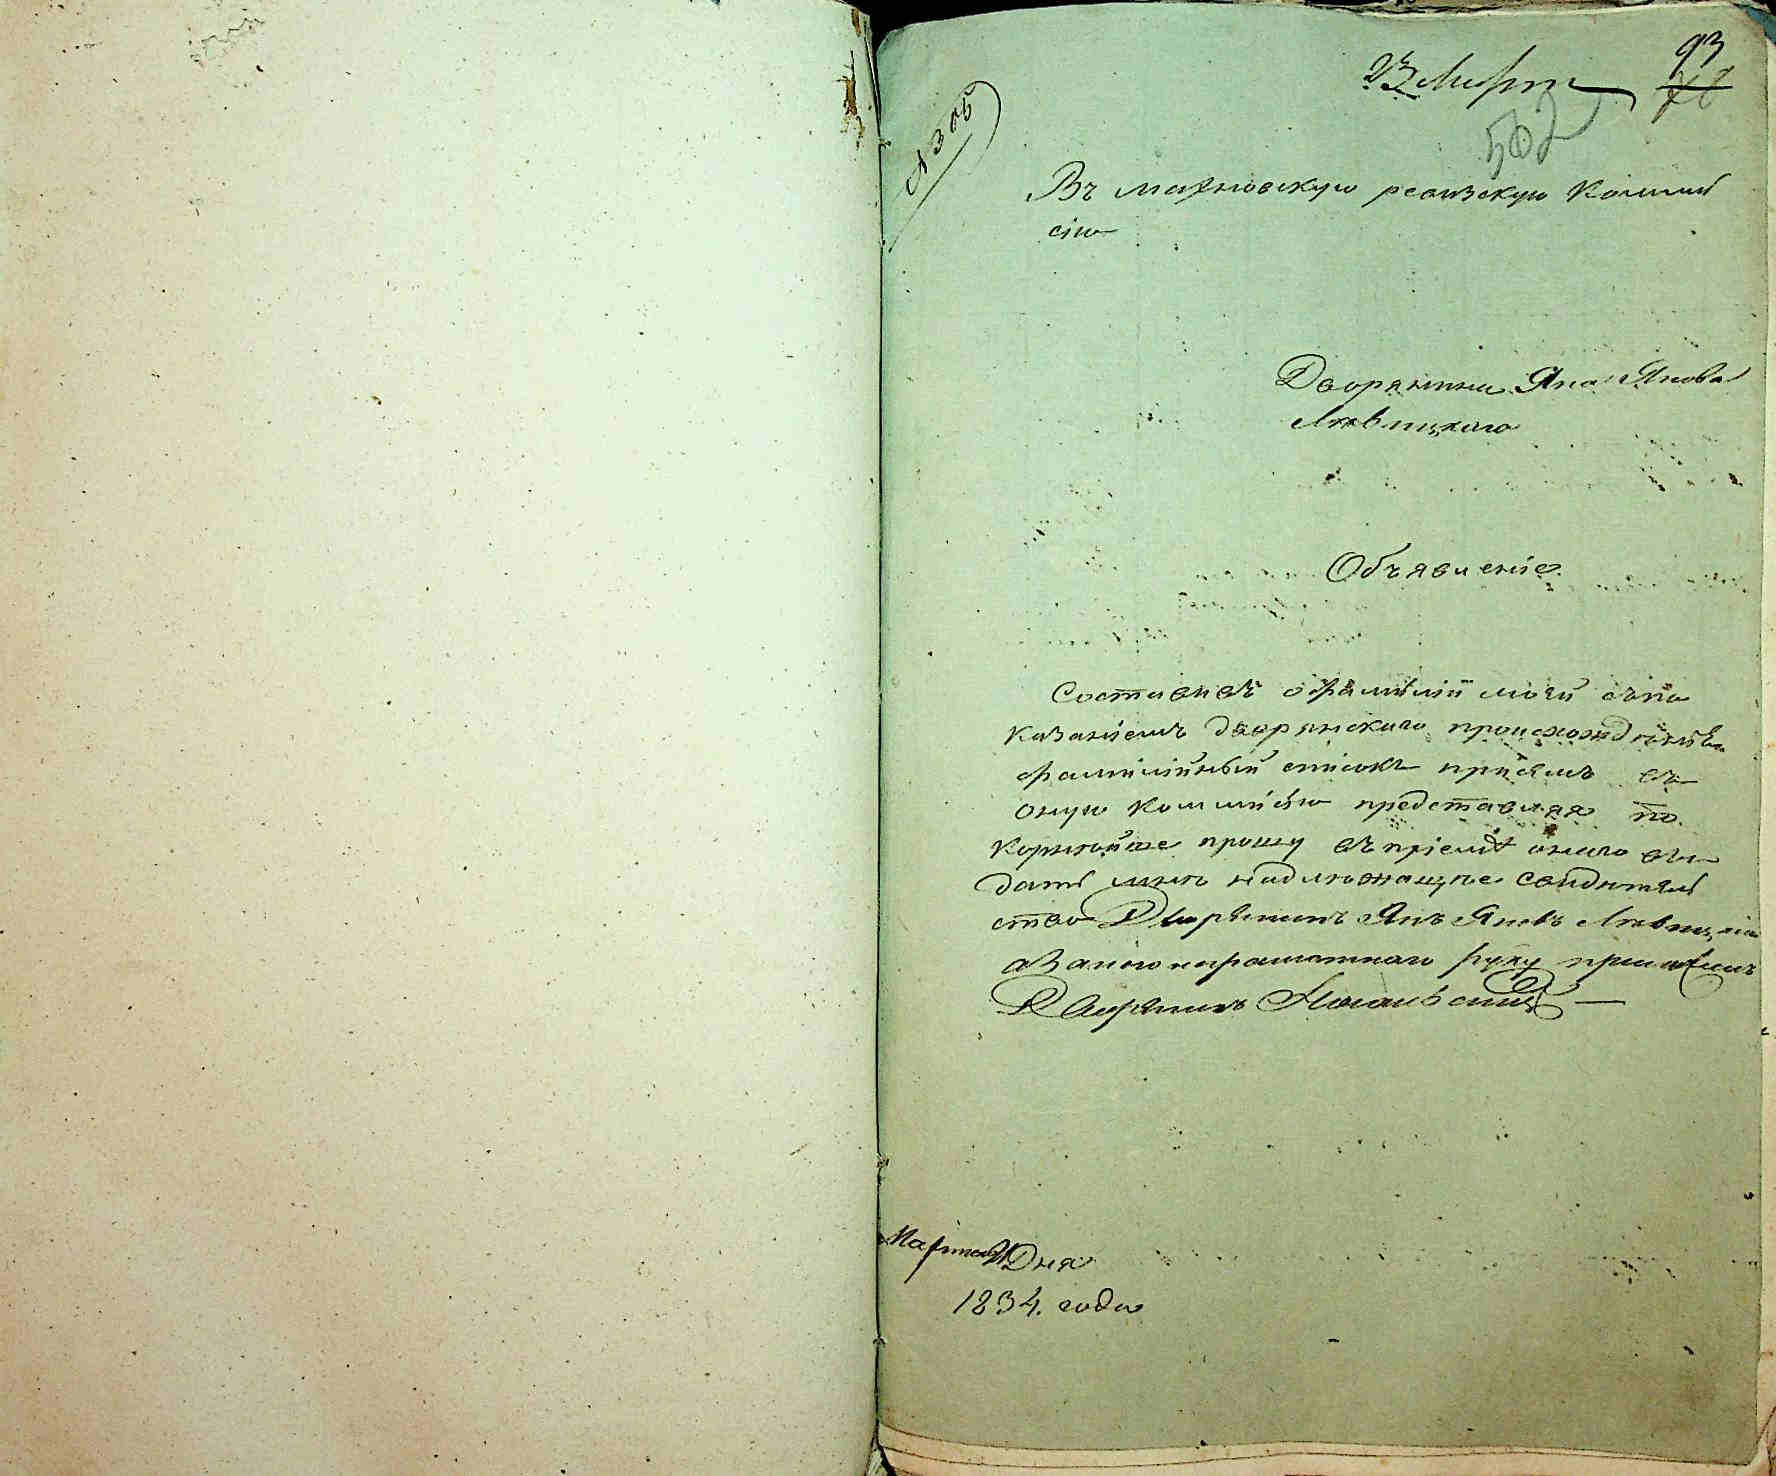 23 Марта
93
502
№ 305
Въ махновскую ревизскую Коммиі
сію
Дворянина Яна Янова
Левицкаго
Объявленіе
Составивъ офамиліи моей съпо
казаніемъ дворянскаго происхожденія
фамилійный списокъ присемъ въ
оную коммисію представляя по
корнѣйше прошу въ пріемѣ онаго вы
дать мнѣ надлежащее свидѣтель
ство Дворянинъ Янъ Яновъ
азанего неграмотнаго руку приложилъ
Дворянинъ
Марта Дня
1834. года